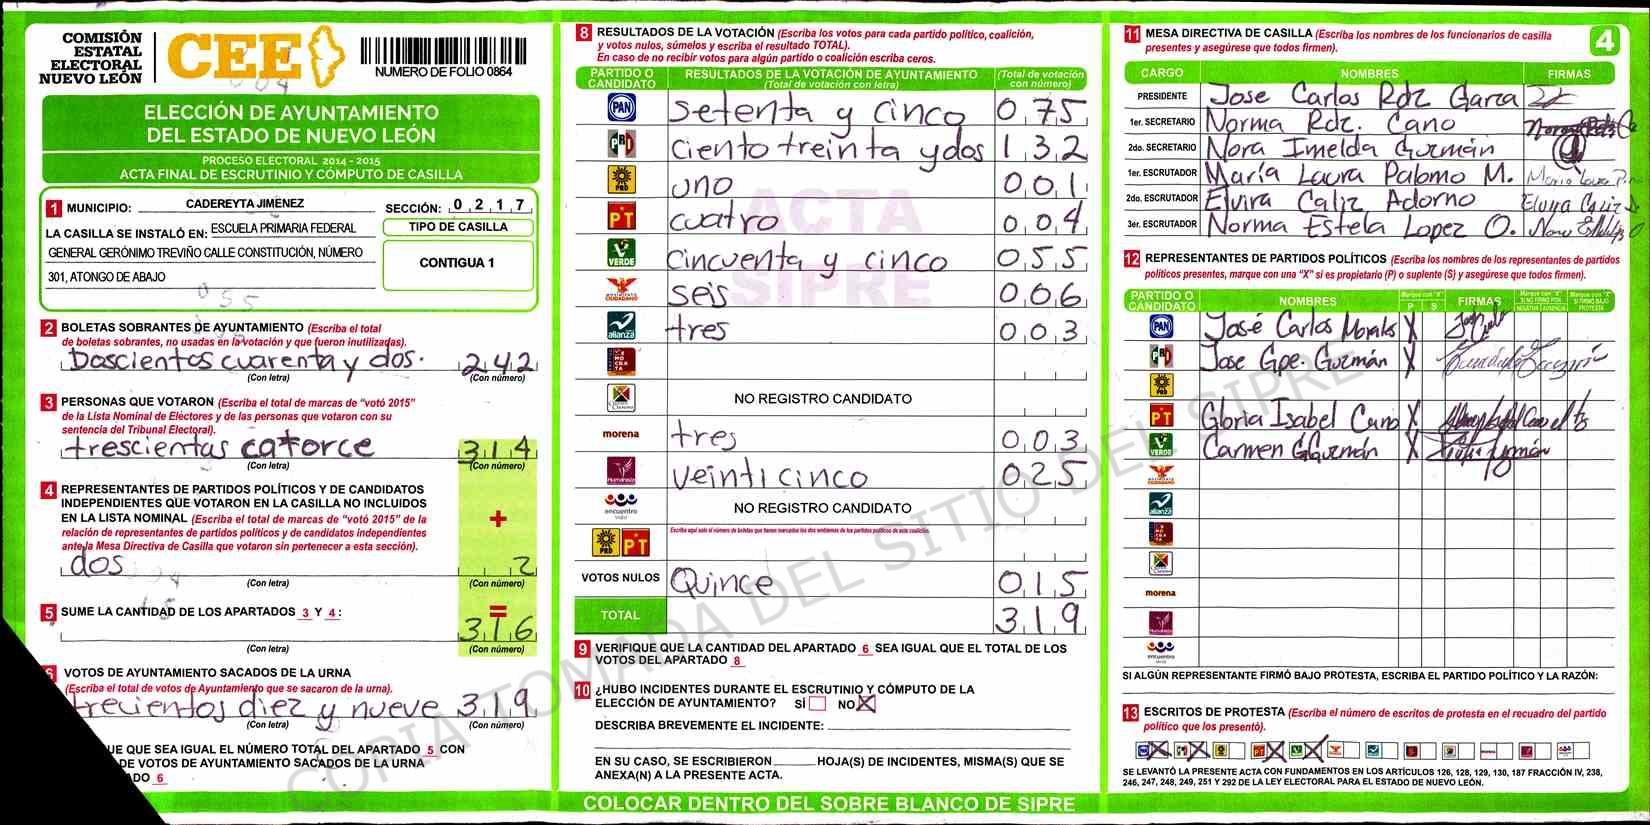 COMISIÓN
ESTATAL
ELECTORAL
NUEVO LEÓN
CEE
NUMERO DE FOLIO 0864
ELECCIÓN DE AYUNTAMIENTO
DEL ESTADO DE NUEVO LEÓN
PROCESO ELECTORAL 2014 - 2015
ACTA FINAL DE ESCRUTINIO Y CÓMPUTO DE CASILLA
1 MUNICIPIO: CADEREYTA JIMÉNEZ SECCIÓN: 0 2 1 7
LA CASILLA SE INSTALÓ EN: ESCUELA PRIMARIA FEDERAL
GENERAL GERÓNIMO TREVIÑO CALLE CONSTITUCIÓN, NÚMERO
301, ATONGO DE ABAJO
TIPO DE CASILLA
CONTIGUA 1
2 BOLETAS SOBRANTES DE AYUNTAMIENTO (Escriba el total
de boletas sobrantes, no usadas en la votación y que fueron inutilizadas).
Doscientos cuarenta y dos. 242
(Con letra) (Con número)
3 PERSONAS QUE VOTARON (Escriba el total de marcas de "votó 2015"
de la Lista Nominal de Electores y de las personas que votaron con su
sentencia del Tribunal Electoral).
trescientas catorce 314
(Con letra) (Con número)
4 REPRESENTANTES DE PARTIDOS POLÍTICOS Y DE CANDIDATOS
INDEPENDIENTES QUE VOTARON EN LA CASILLA NO INCLUIDOS
EN LA LISTA NOMINAL (Escriba el total de marcas de "votó 2015" de la
relación de representantes de partidos políticos y de candidatos independientes
ante la Mesa Directiva de Casilla que votaron sin pertenecer a esta sección).
+
dos 2
(Con letra) (Con número)
5 SUME LA CANTIDAD DE LOS APARTADOS 3 Y 4:
=
316
(Con letra) (Con número)
6 VOTOS DE AYUNTAMIENTO SACADOS DE LA URNA
(Escriba el total de votos de Ayuntamiento que se sacaron de la urna).
trecientos diez y nueve 319
(Con letra) (Con número)
UE QUE SEA IGUAL EL NÚMERO TOTAL DEL APARTADO 5 CON
DE VOTOS DE AYUNTAMIENTO SACADOS DE LA URNA
DO 6
8 RESULTADOS DE LA VOTACIÓN (Escriba los votos para cada partido político, coalición,
y votos nulos, súmelos y escriba el resultado TOTAL).
En caso de no recibir votos para algún partido o coalición escriba ceros.
PARTIDO O CANDIDATO RESULTADOS DE LA VOTACIÓN DE AYUNTAMIENTO (Total de votación con letra) (Total de votación con número)
PAN setenta y cinco 075
PRI ciento treinta y dos 132
PRD uno 001
PT cuatro 004
VERDE cincuenta y cinco 055
MOVIMIENTO CIUDADANO seis 006
alianza tres 003
DEMÓCRATA
NO REGISTRO CANDIDATO
morena tres 003
Humanista veinti cinco 025
encuentro social NO REGISTRO CANDIDATO
Escriba aquí solo el número de boletas que tienen marcados los dos emblemas de los partidos políticos de esta coalición.
PRD PT
VOTOS NULOS Quince 015
TOTAL 319
ACTA
SIPRE
9 VERIFIQUE QUE LA CANTIDAD DEL APARTADO 6 SEA IGUAL QUE EL TOTAL DE LOS
VOTOS DEL APARTADO 8
10 ¿HUBO INCIDENTES DURANTE EL ESCRUTINIO Y CÓMPUTO DE LA
ELECCIÓN DE AYUNTAMIENTO? SÍ NO X
DESCRIBA BREVEMENTE EL INCIDENTE:
EN SU CASO, SE ESCRIBIERON HOJA(S) DE INCIDENTES, MISMA(S) QUE SE
ANEXA(N) A LA PRESENTE ACTA.
COLOCAR DENTRO DEL SOBRE BLANCO DE SIPRE
11 MESA DIRECTIVA DE CASILLA (Escriba los nombres de los funcionarios de casilla
presentes y asegúrese que todos firmen).
4
CARGO NOMBRES FIRMAS
PRESIDENTE Jose Carlos Rdz Garza
1er. SECRETARIO Norma Rdz. Cano
2do. SECRETARIO Nora Imelda Guzmán
1er. ESCRUTADOR María Laura Palomo M.
2do. ESCRUTADOR Elvira Caliz Adorno
3er. ESCRUTADOR Norma Estela Lopez O.
12 REPRESENTANTES DE PARTIDOS POLÍTICOS (Escriba los nombres de los representantes de partidos
políticos presentes, marque con una "X" si es propietario (P) o suplente (S) y asegúrese que todos firmen).
PARTIDO O CANDIDATO NOMBRES Marque con "X" P S FIRMAS Marque con "X" SI NO FIRMÓ POR NEGATIVA AUSENCIA Marque con "X" SI FIRMÓ BAJO PROTESTA
PAN José Carlos Morales X
PRI Jose Gpe. Guzmán X
PRD
PT Gloria Isabel Cano X
VERDE Carmen G Guzmán X
MOVIMIENTO CIUDADANO
alianza
DEMÓCRATA
morena
Humanista
encuentro social
SI ALGÚN REPRESENTANTE FIRMÓ BAJO PROTESTA, ESCRIBA EL PARTIDO POLÍTICO Y LA RAZÓN:
13 ESCRITOS DE PROTESTA (Escriba el número de escritos de protesta en el recuadro del partido
político que los presentó).
X X X X
SE LEVANTÓ LA PRESENTE ACTA CON FUNDAMENTOS EN LOS ARTÍCULOS 126, 128, 129, 130, 187 FRACCIÓN IV, 238,
246, 247, 248, 249, 251 Y 292 DE LA LEY ELECTORAL PARA EL ESTADO DE NUEVO LEÓN.
COPIA TOMADA DEL SITIO DEL SIPRE